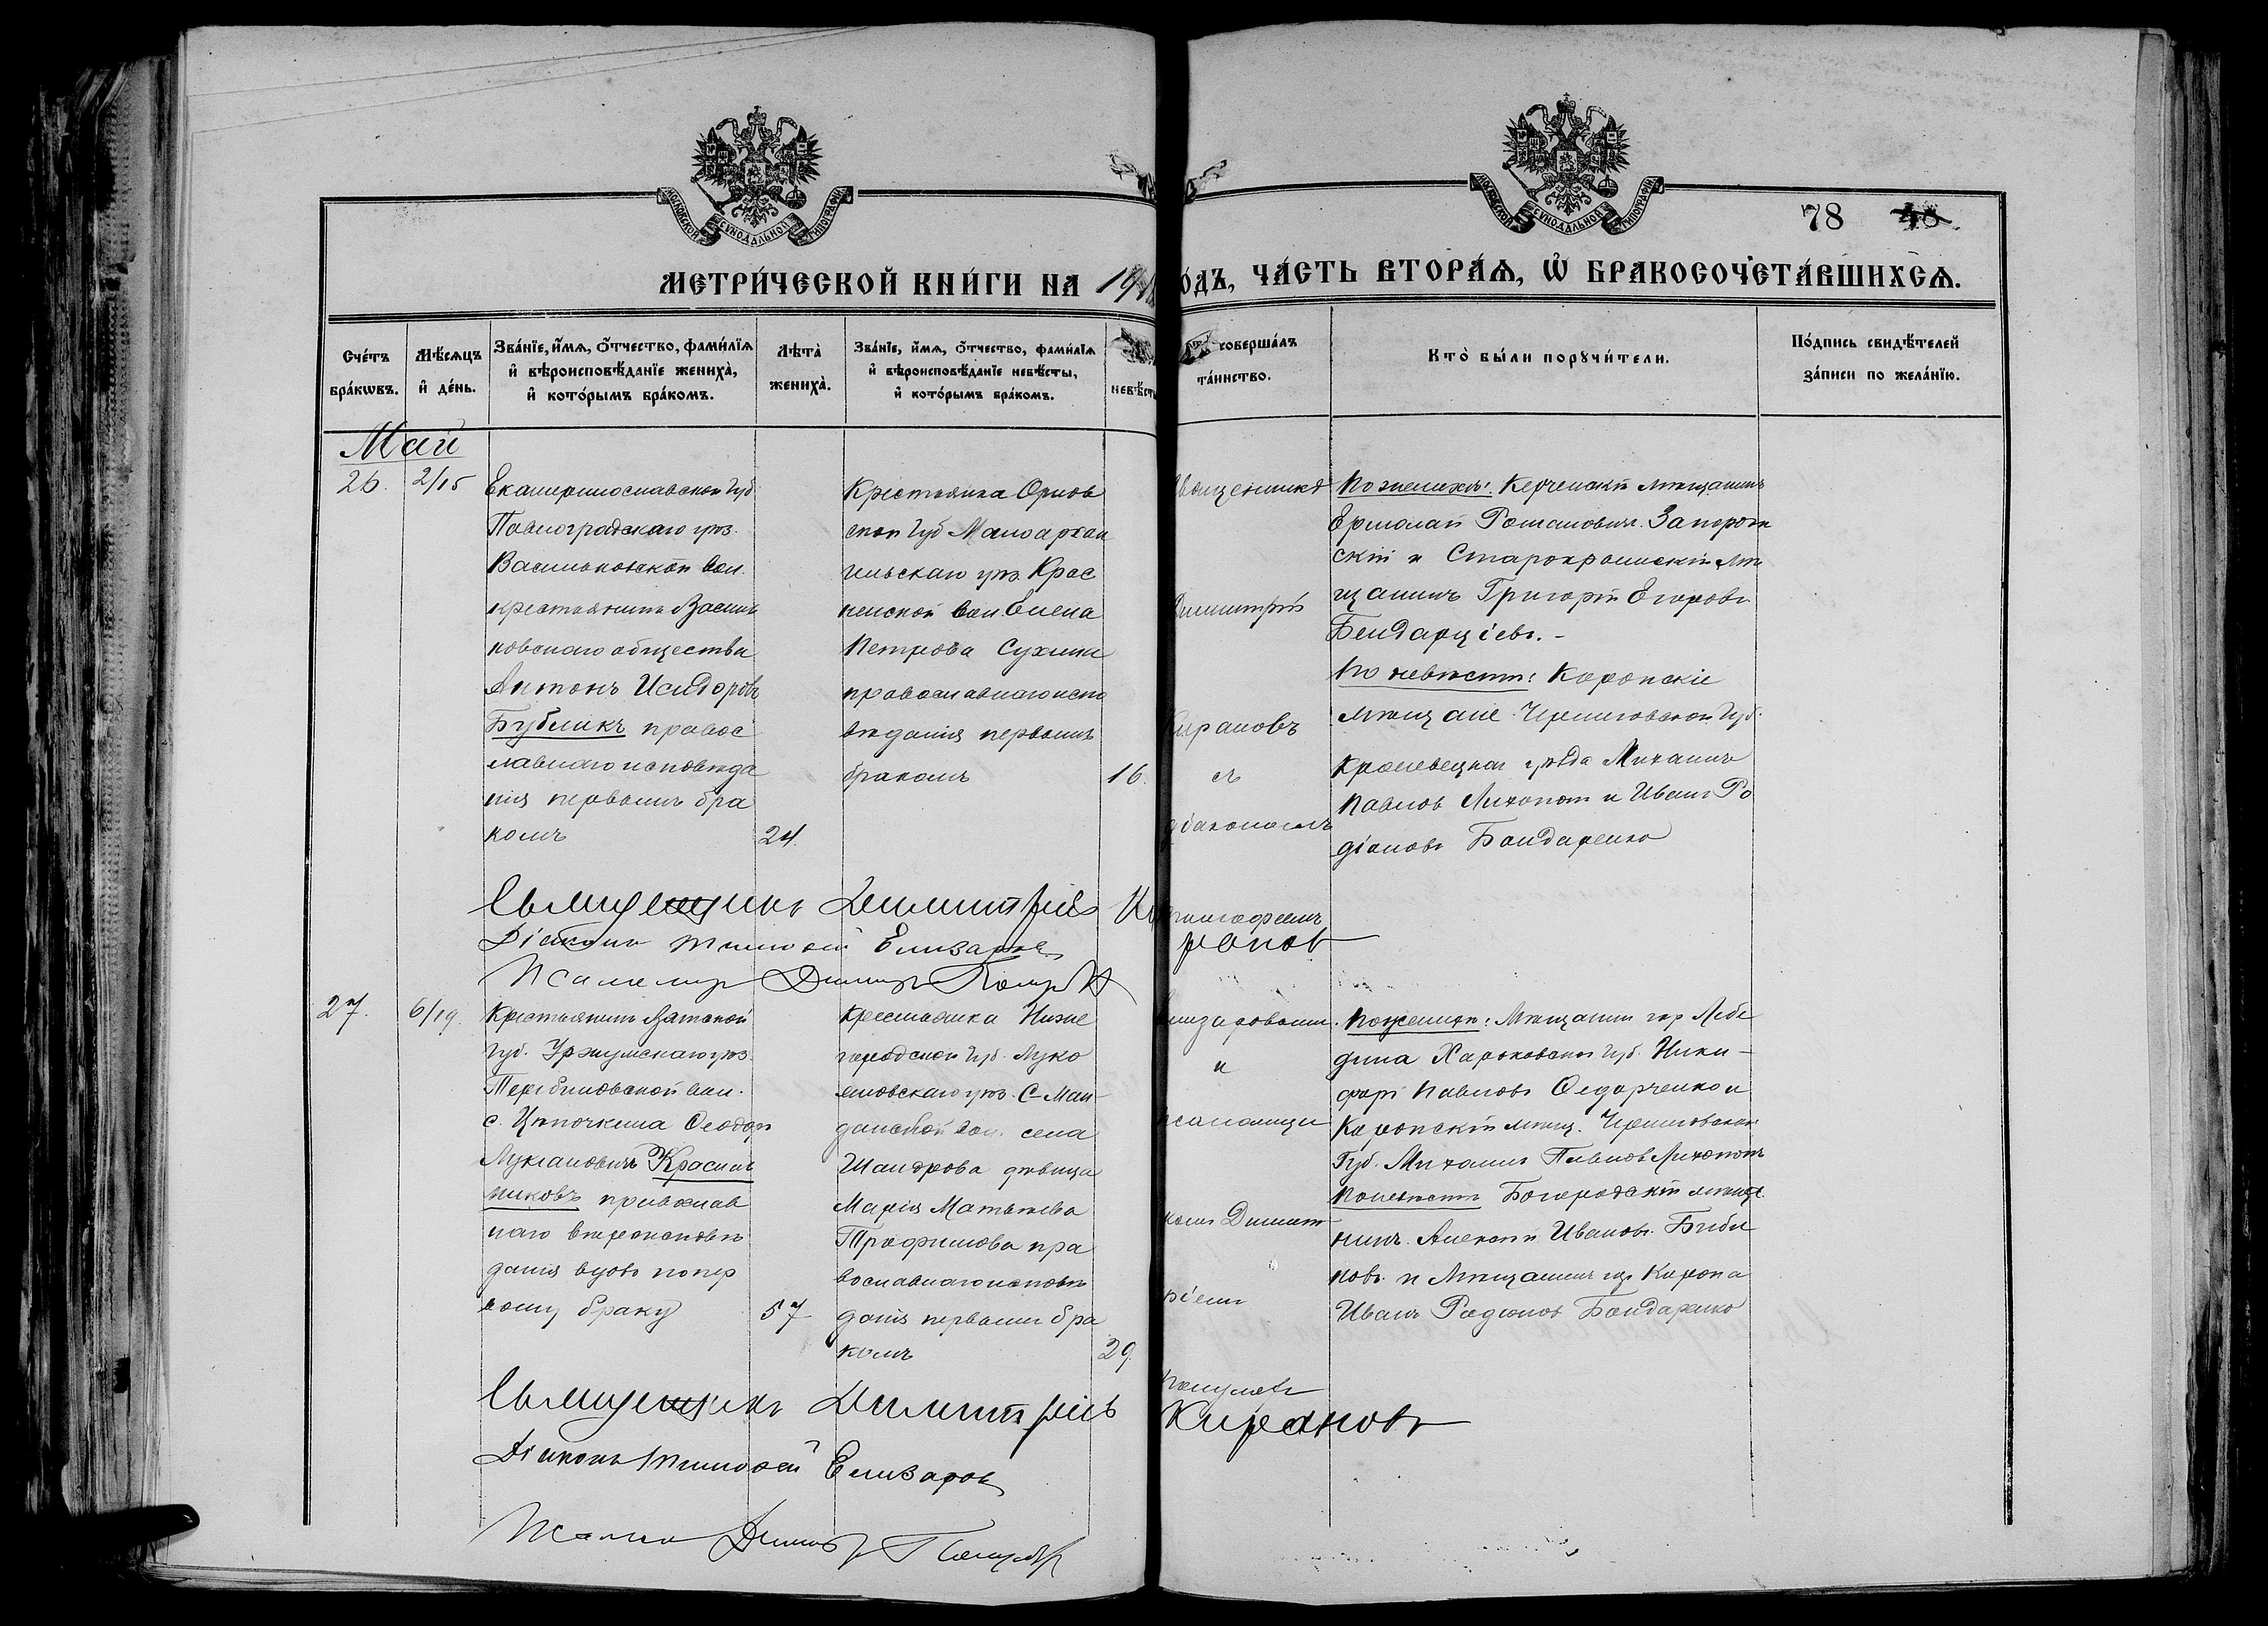 МОСКОВСКОЙ СУНОДАЛЬНОЙ ТИПОГРАФІИ
МОСКОВСКОЙ СУНОДАЛЬНОЙ ТИПОГРАФІИ
78
МЕТРИ́ЧЕСКОЙ КНИ́ГИ НА 19
О́ДЪ, ЧА́СТЬ ВТОРА́Я, Ѽ БРАКОСОЧЕТА́ВШИХСЯ.
Сче́тъ бра́кѡвъ.
Мѣ́сяцъ и҆ де́нь.
Зва́нїе, и҆́мя, ѻ҆́тчество, фами́лїя и҆ вѣроисповѣ́данїе жениха̀, и҆ кото́рымъ бра́комъ.
Лѣта̀ жениха̀.
Зва́нїе, и҆́мя, ѻ҆́тчество, фами́лїя и҆ вѣроисповѣ́данїе невѣ́сты, и҆ кото́рымъ бра́комъ.
невѣ́сты
соверша́лъ та́инство.
Кто̀ бы́ли порꙋчи́тели.
По́дпись свидѣ́телей за́писи по жела́нїю.
Май
26. 2/15
Екатеринославской Губ
Павлоградскаго уѣз.
Васильковской вол.
крестьянинъ Василь
ковскаго общества
Антонъ Исидоровъ
Бубликъ правос
лавнаго исповѣда
нія первымъ бра
комъ
24.
Крестьянка Орлов
ской Губ Малоархан
гельскаго уѣз. Крас
ненской вол. Елена
Петрова Сухина
православнаго испо
вѣданія первымъ
бракомъ
16.
Священникъ
Димитрій
Кирановъ
съ
діакономъ
Тимофеемъ
По женихѣ: Керченскій мѣщанинъ
Ермолай Романович. Запорож
скій и Старокрымскій мѣ
щанинъ Григорій Егоровъ
Бендарцiевъ. -
По невѣстѣ: Коропскіе
мѣщане Черниговской Губ.
Кролевецкаго уѣзда Михаилъ
Павлов Лихопой и Иванъ Ро
діоновъ Бондаренко
Священникъ Димитрій Кирановъ
Діаконъ Тимофей Елизаров
Псаломщ Димитр
27. 6/19.
Крестьянинъ Вятской
Губ. Уржумскаго уѣз.
вол.
с. Цѣпочкина Ѳеодоръ
Лукіановичъ Красиль
никовъ православ
наго вѣроисповѣ
данія вдовъ по пер
вому браку
57
Крестьянка Ниже
городской Губ. Луко
яновскаго уѣз. С-Май-
данской вол. села
Шандрова дѣвица
Марія Матвѣева
Трофимова пра
вославнаго исповѣ
данія первымъ бра
комъ
29.
Елизаровымъ.
и
псаломщи
комъ Димит
ріемъ
По женихѣ: Мѣщанин гор Лебе
дина Харьковской Губ. Ники-
форъ Павловъ Ѳедорченко и
Коропскій мѣщ. Черниговской
Губ. Михаилъ Павлов Лихопой
По невѣстѣ Богородскій мѣща
нинъ. Алексѣй Ивановъ. Биби
ковъ. и Мѣщанинъ гор Коропа
Иванъ Родіонов Бондаренко
Священникъ Димитрій Кирановъ
Діаконъ Тимофей Елизаров